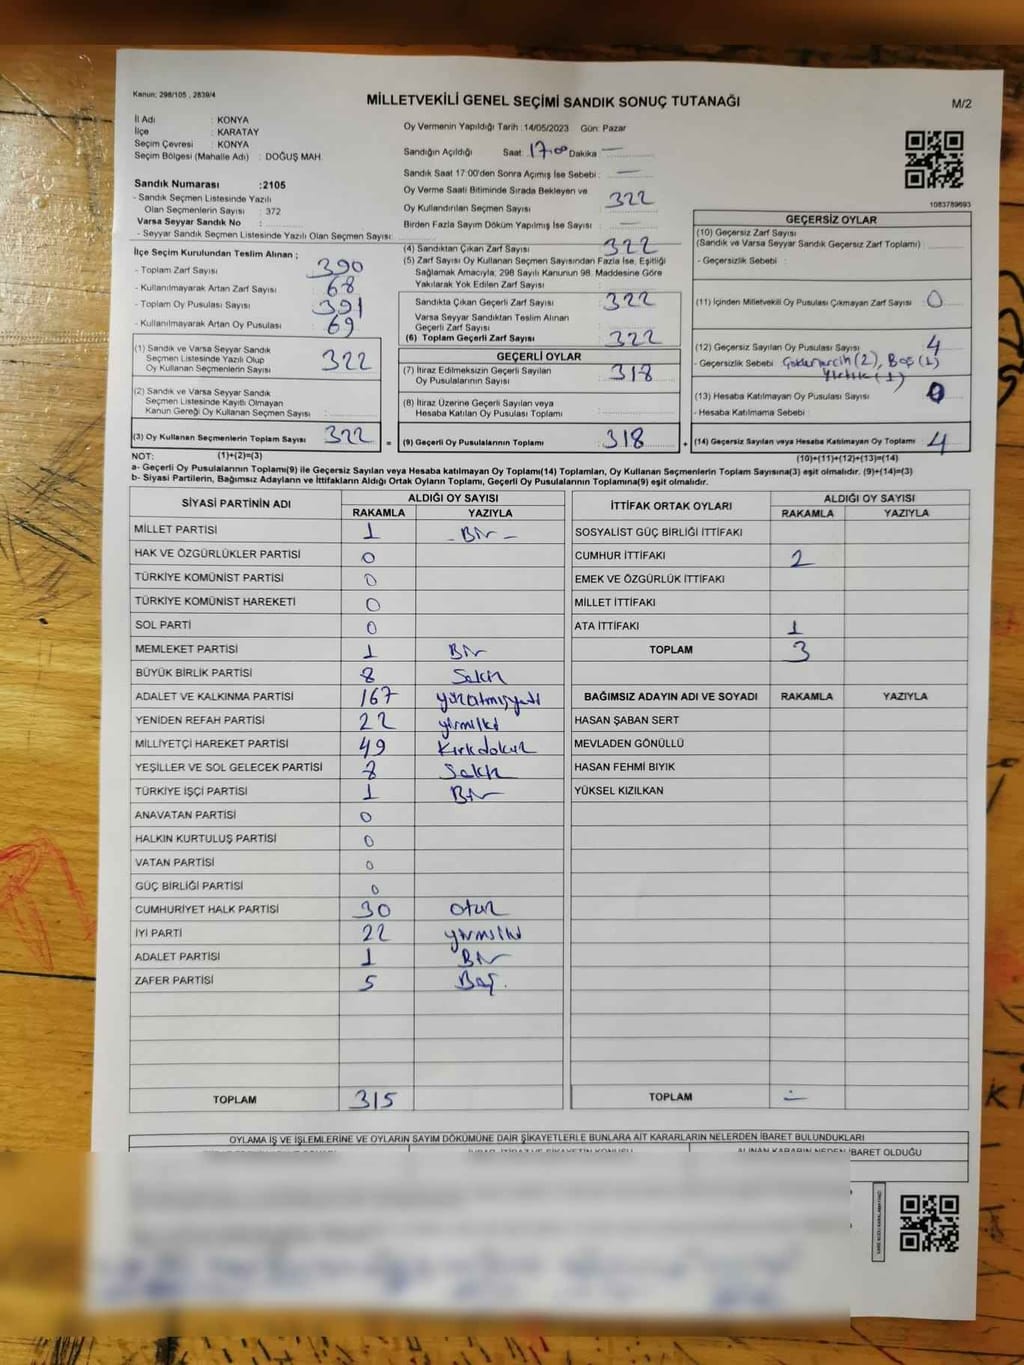 Kanun: 298/105 , 2839/4
MİLLETVEKİLİ GENEL SEÇİMİ SANDIK SONUÇ TUTANAĞI
M/2
İl Adı : KONYA
İlçe : KARATAY
Seçim Çevresi : KONYA
Seçim Bölgesi (Mahalle Adı) : DOĞUŞ MAH.
Sandık Numarası :2105
- Sandık Seçmen Listesinde Yazılı
Olan Seçmenlerin Sayısı : 372
Varsa Seyyar Sandık No :
- Seyyar Sandık Seçmen Listesinde Yazılı Olan Seçmen Sayısı:
Oy Vermenin Yapıldığı Tarih :14/05/2023 Gün: Pazar
Sandığın Açıldığı Saat: 17.00 Dakika —
Sandık Saat 17:00'den Sonra Açımış İse Sebebi : —
Oy Verme Saati Bitiminde Sırada Bekleyen ve
Oy Kullandırılan Seçmen Sayısı 322
Birden Fazla Sayım Döküm Yapılmış İse Sayısı : —
1083789693
İlçe Seçim Kurulundan Teslim Alınan ;
- Toplam Zarf Sayısı : 390
- Kullanılmayarak Artan Zarf Sayısı : 68
- Toplam Oy Pusulası Sayısı : 391
- Kullanılmayarak Artan Oy Pusulası : 69
(1) Sandık ve Varsa Seyyar Sandık
Seçmen Listesinde Yazılı Olup
Oy Kullanan Seçmenlerin Sayısı : 322
(2) Sandık ve Varsa Seyyar Sandık
Seçmen Listesinde Kayıtlı Olmayan
Kanun Gereği Oy Kullanan Seçmen Sayısı :
(3) Oy Kullanan Seçmenlerin Toplam Sayısı : 322 =
(4) Sandıktan Çıkan Zarf Sayısı : 322
(5) Zarf Sayısı Oy Kullanan Seçmen Sayısından Fazla İse, Eşitliği
Sağlamak Amacıyla; 298 Sayılı Kanunun 98. Maddesine Göre
Yakılarak Yok Edilen Zarf Sayısı :
Sandıkta Çıkan Geçerli Zarf Sayısı : 322
Varsa Seyyar Sandıktan Teslim Alınan
Geçerli Zarf Sayısı :
(6) Toplam Geçerli Zarf Sayısı : 322
GEÇERLİ OYLAR
(7) İtiraz Edilmeksizin Geçerli Sayılan
Oy Pusulalarının Sayısı : 318
(8) İtiraz Üzerine Geçerli Sayılan veya
Hesaba Katılan Oy Pusulası Toplamı :
(9) Geçerli Oy Pusulalarının Toplamı : 318 +
GEÇERSİZ OYLAR
(10) Geçersiz Zarf Sayısı
(Sandık ve Varsa Seyyar Sandık Geçersiz Zarf Toplamı) :
- Geçersizlik Sebebi :
(11) İçinden Milletvekili Oy Pusulası Çıkmayan Zarf Sayısı : 0
(12) Geçersiz Sayılan Oy Pusulası Sayısı : 4
- Geçersizlik Sebebi : (2), Boş (1)
Yırtık (1)
(13) Hesaba Katılmayan Oy Pusulası Sayısı : 0
- Hesaba Katılmama Sebebi :
(14) Geçersiz Sayılan veya Hesaba Katılmayan Oy Toplamı : 4
NOT: (1)+(2)=(3) (10)+(11)+(12)+(13)=(14)
a- Geçerli Oy Pusulalarının Toplamı(9) ile Geçersiz Sayılan veya Hesaba katılmayan Oy Toplamı(14) Toplamları, Oy Kullanan Seçmenlerin Toplam Sayısına(3) eşit olmalıdır. (9)+(14)=(3)
b- Siyasi Partilerin, Bağımsız Adayların ve İttifakların Aldığı Ortak Oyların Toplamı, Geçerli Oy Pusulalarının Toplamına(9) eşit olmalıdır.
SİYASİ PARTİNİN ADI ALDIĞI OY SAYISI
RAKAMLA YAZIYLA
MİLLET PARTİSİ 1 - Bir -
HAK VE ÖZGÜRLÜKLER PARTİSİ 0
TÜRKİYE KOMÜNİST PARTİSİ 0
TÜRKİYE KOMÜNİST HAREKETİ 0
SOL PARTİ 0
MEMLEKET PARTİSİ 1 Bir
BÜYÜK BİRLİK PARTİSİ 8 Sekiz
ADALET VE KALKINMA PARTİSİ 167 yüzatmışyedi
YENİDEN REFAH PARTİSİ 22 yirmiiki
MİLLİYETÇİ HAREKET PARTİSİ 49 Kırkdokuz
YEŞİLLER VE SOL GELECEK PARTİSİ 8 Sekiz
TÜRKİYE İŞÇİ PARTİSİ 1 Bir
ANAVATAN PARTİSİ 0
HALKIN KURTULUŞ PARTİSİ 0
VATAN PARTİSİ 0
GÜÇ BİRLİĞİ PARTİSİ 0
CUMHURİYET HALK PARTİSİ 30 otuz
İYİ PARTİ 22 yirmiiki
ADALET PARTİSİ 1 Bir
ZAFER PARTİSİ 5 Beş.
TOPLAM 315
İTTİFAK ORTAK OYLARI ALDIĞI OY SAYISI
RAKAMLA YAZIYLA
SOSYALİST GÜÇ BİRLİĞİ İTTİFAKI
CUMHUR İTTİFAKI 2
EMEK VE ÖZGÜRLÜK İTTİFAKI
MİLLET İTTİFAKI
ATA İTTİFAKI 1
TOPLAM 3
BAĞIMSIZ ADAYIN ADI VE SOYADI RAKAMLA YAZIYLA
HASAN ŞABAN SERT
MEVLADEN GÖNÜLLÜ
HASAN FEHMİ BIYIK
YÜKSEL KIZILKAN
TOPLAM
OYLAMA İŞ VE İŞLEMLERİNE VE OYLARIN SAYIM DÖKÜMÜNE DAİR ŞİKAYETLERLE BUNLARA AİT KARARLARIN NELERDEN İBARET BULUNDUKLARI
ALINAN KARARIN NEDEN İBARET OLDUĞU